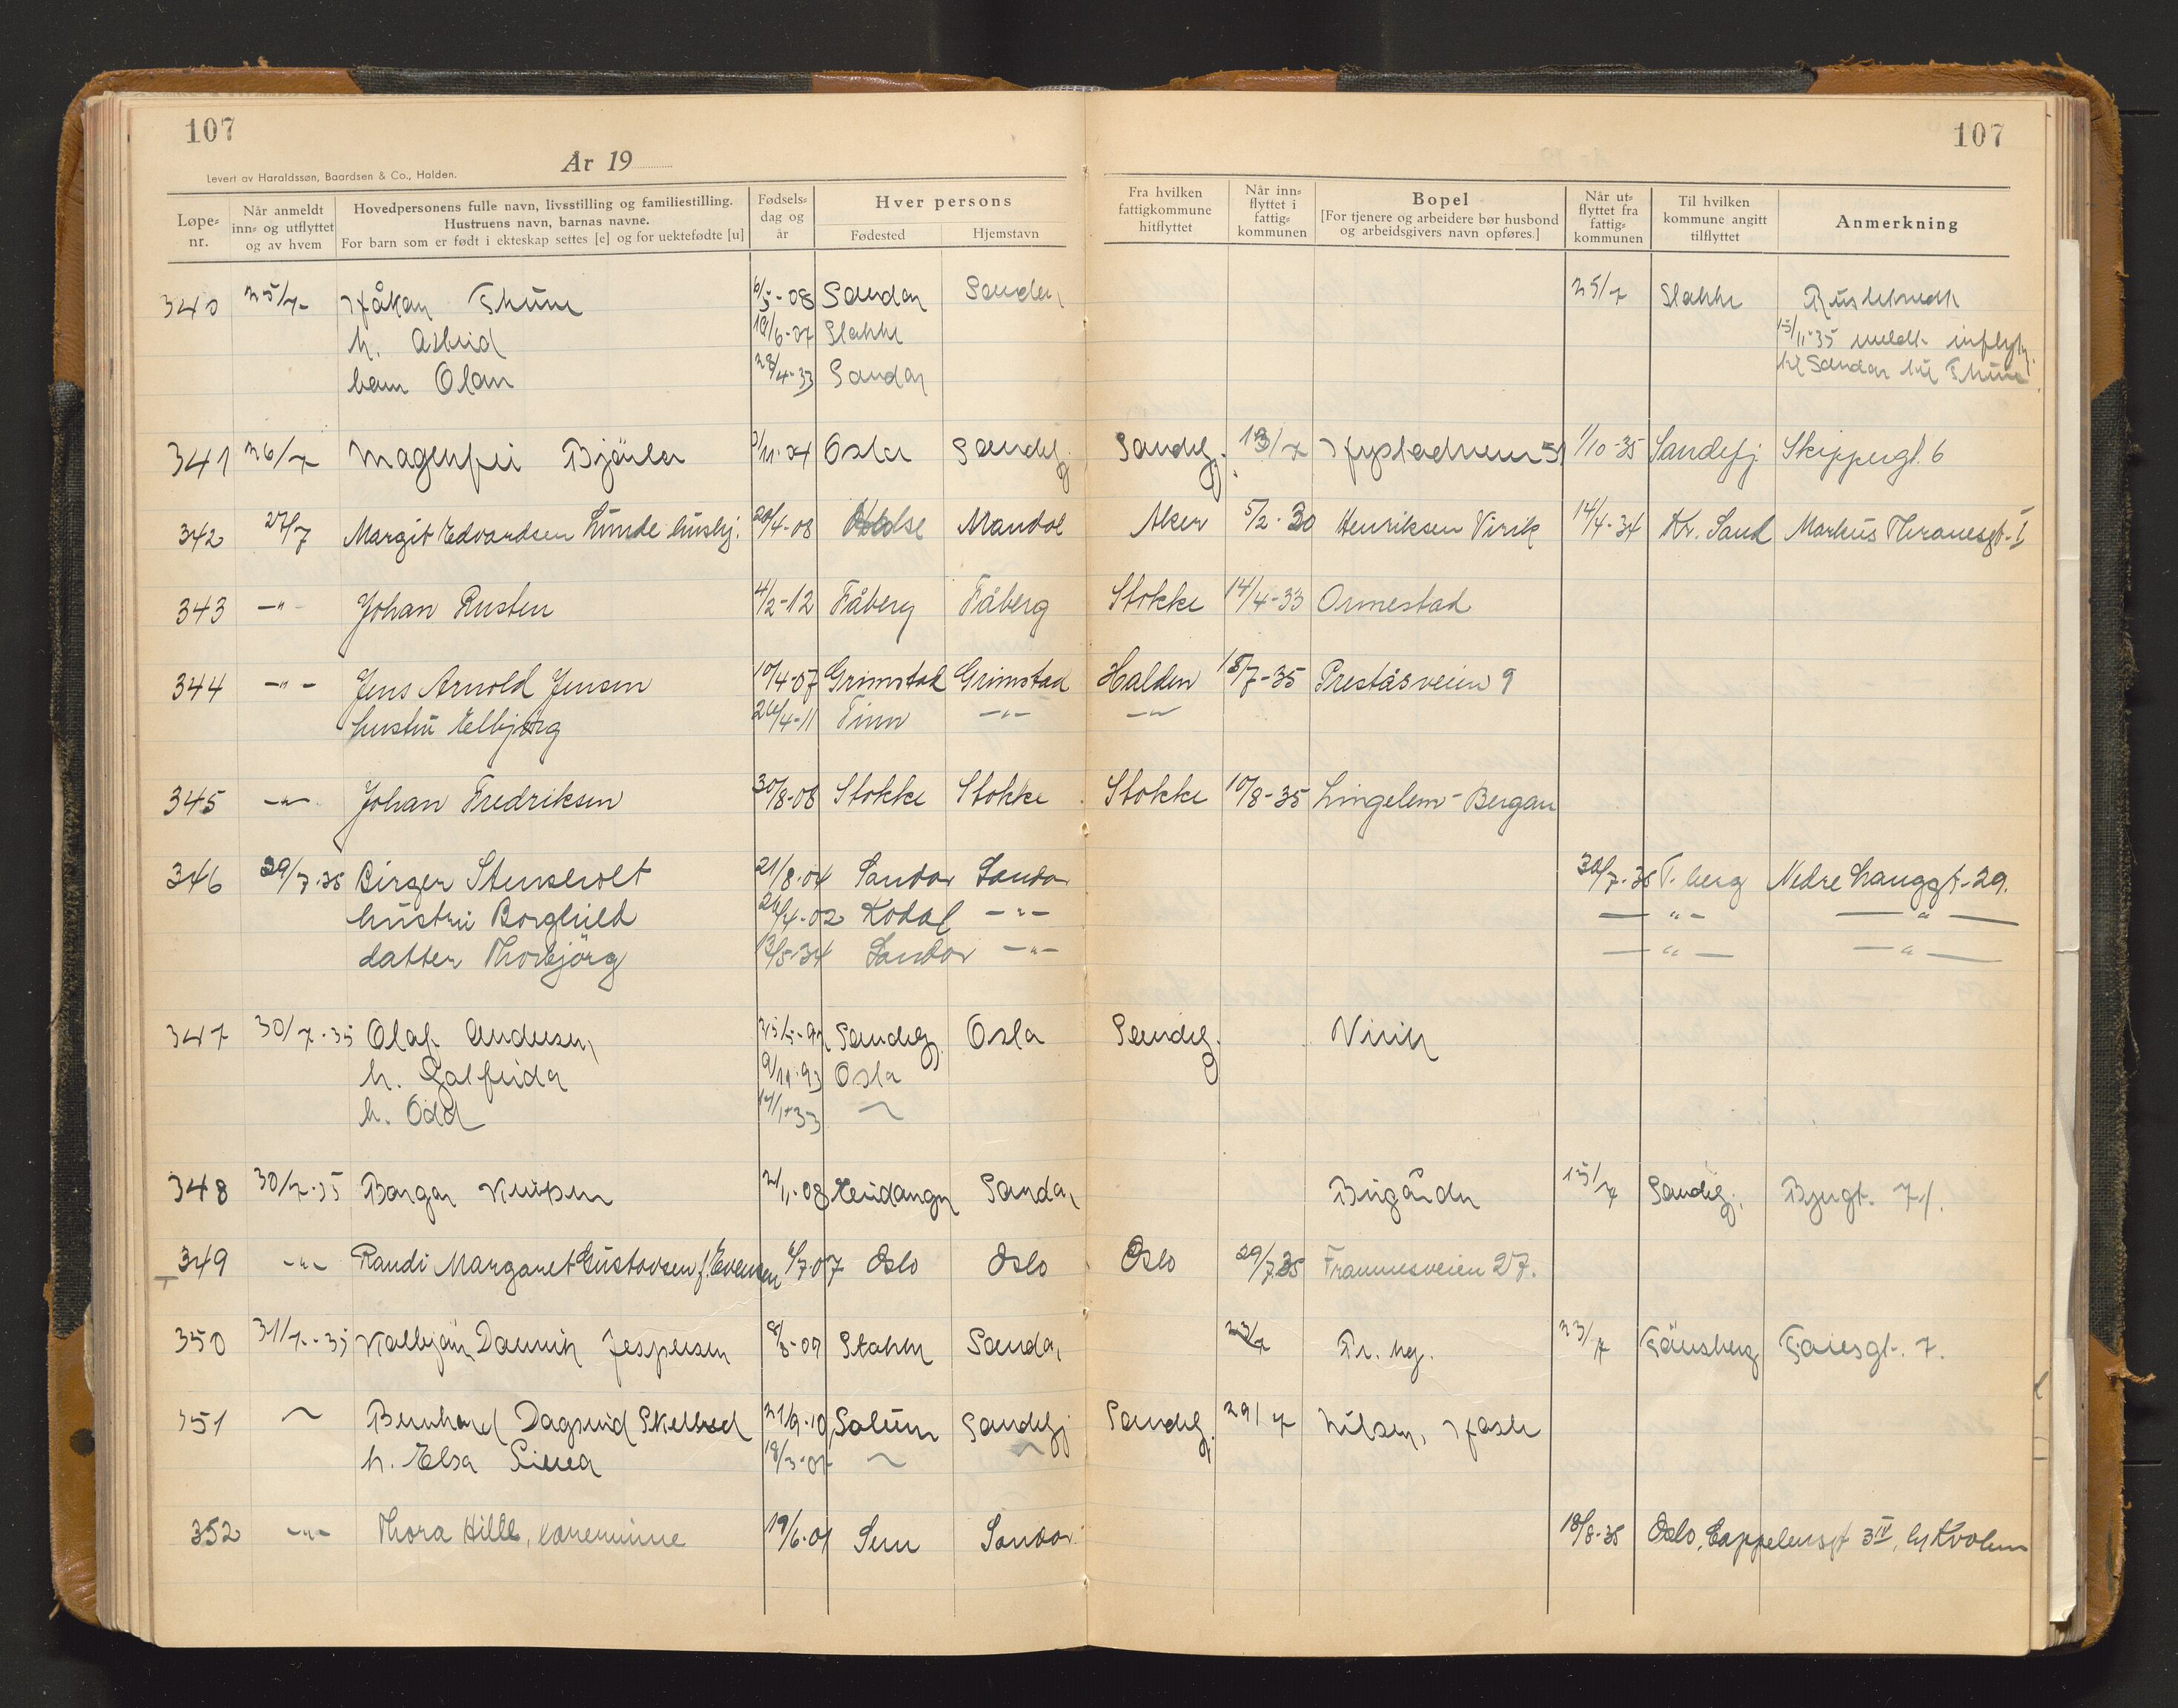 107
107
År 19
Levert av Haraldssøn, Baardsen & Co., Halden.
Løpe-nr.
Når anmeldt inn- og utflyttet og av hvem
Hovedpersonens fulle navn, livsstilling og familiestilling.
Hustruens navn, barnas navne.
For barn som er født i ekteskap settes [e] og for uektefødte [u]
Fødsels-dag og år
Hver persons
Fødested
Hjemstavn
Fra hvilken fattigkommune hitflyttet
Når inn-flyttet i fattig-kommunen
Bopel
[For tjenere og arbeidere bør husbond og arbeidsgivers navn opføres.]
Når ut-flyttet fra fattig-kommunen
Til hvilken kommune angitt tilflyttet
Anmerkning
340 25/7- Håkon Thune 6/5-08 Sandar Sandar 25/7 Stokke
h. Astrid 19/6-07 Stokke 15/11-35 meldt innflytt
barn Olav 28/4-33 Sandar til Sandar til Thune
341 26/7 /11-04 Oslo Sandefj. Sandefj. 13/7 51 1/10-35 Sandefj. Skippergt. 6
342 27/7 Margit Edvardsen Lunde hushj. 20/4-08 Mandal Aker 5/2-30 Henriksen Virik 14/4-34 Kr. Sand Markus Thranesgt-I
343 -"- Johan Rusten 4/2-12 Fåberg Fåberg Stokke 14/4-33 Ormestad
344 -"- Jens Arnold Jensen 10/4-07 Grimstad Grimstad Halden 18/7-35 Preståsveien 9
hustru Elbjørg 26/4-11 Tinn -"- -"-
345 -"- Johan Fredriksen 30/8-08 Stokke Stokke Stokke 10/8-35 Lingelem-Bergan
346 29/7-35 Birger Stensholt 21/8-04 Sandar Sandar 30/7-35 T.berg Nedre Langgt-29.
hustru Borghild 26/4-02 Kodal -"- -"- -"-
datter Thorbjörg 13/5-34 Sandar -"- -"- -"-
347 30/7-35 Olaf Andersen Sandefj. Oslo Sandefj. Virik
h. Golfrida 9/11-93 Oslo
h. Odd 33 "
348 30/7-35 2/11-08 Sandar Bugården 15/7 Sandefj. 71.
349 -"- Randi Margaret Gustavsen f. Evensen 6/7-07 Oslo Oslo Oslo 29/7.35 Framnesveien 27.
350 31/7-35 Jespersen 8/3-09 Stokke Sandar 23/7 23/7 Tönsberg Faresgt. 7.
351 " Bernhard Dagfind Skelbred 21/9-10 Solum Sandefj Sandefj. 29/7 Nilsen, Hasle
h. Elsa 18/3-07 " "
352 -"- Thora Hille, kanevinne 19/6-01 Sem Sandar 18/8-35 Oslo, Cappelensgt 3 IV, h/ Kvolem